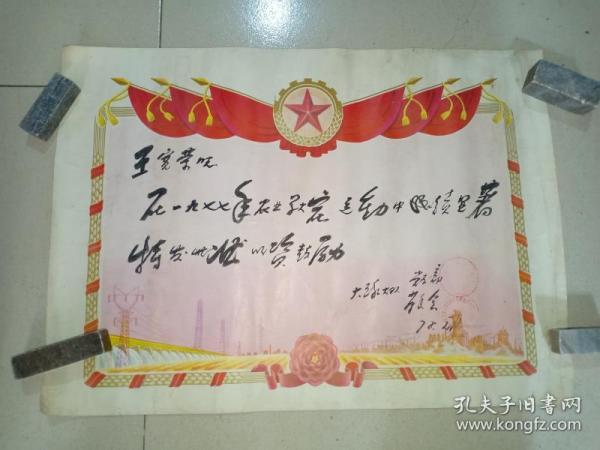 王宽荣
在一九七七年农业学大寨运动中成绩显著
特发此状以资鼓励
大队
孔夫子旧书网
www.kongfz.com